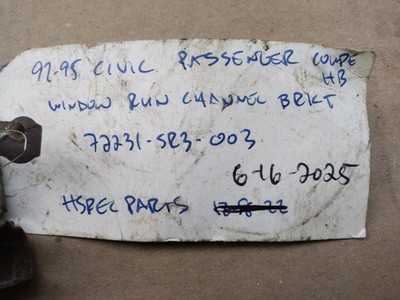 92-95 CIVIC PASSENGER COUPE
HB
WINDOW RUN CHANNEL BRKT
72231-SR3-003
6-16-2025
HSPEC PARTS